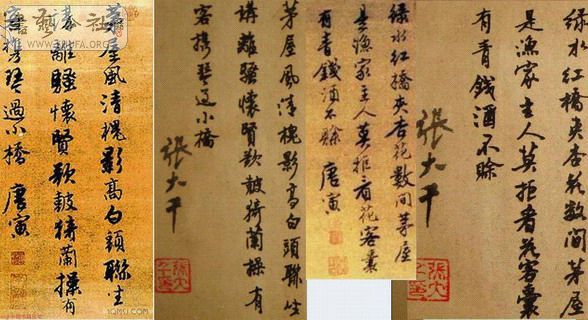 茅屋風清槐影高白頭聯坐
講離騷懷賢歌鼓猗蘭操有
客携琴過小橋 唐寅
茅屋風清槐影高白頭聯坐
講離騷懷賢歌鼓猗蘭操有
客携琴過小橋
張大千
綠水紅橋夾杏花數間茅屋
是漁家主人莫拒看花客囊
有青錢酒不賒 唐寅
綠水紅橋夾杏花數間茅屋
是漁家主人莫拒看花客囊
有青錢酒不賒
張大千